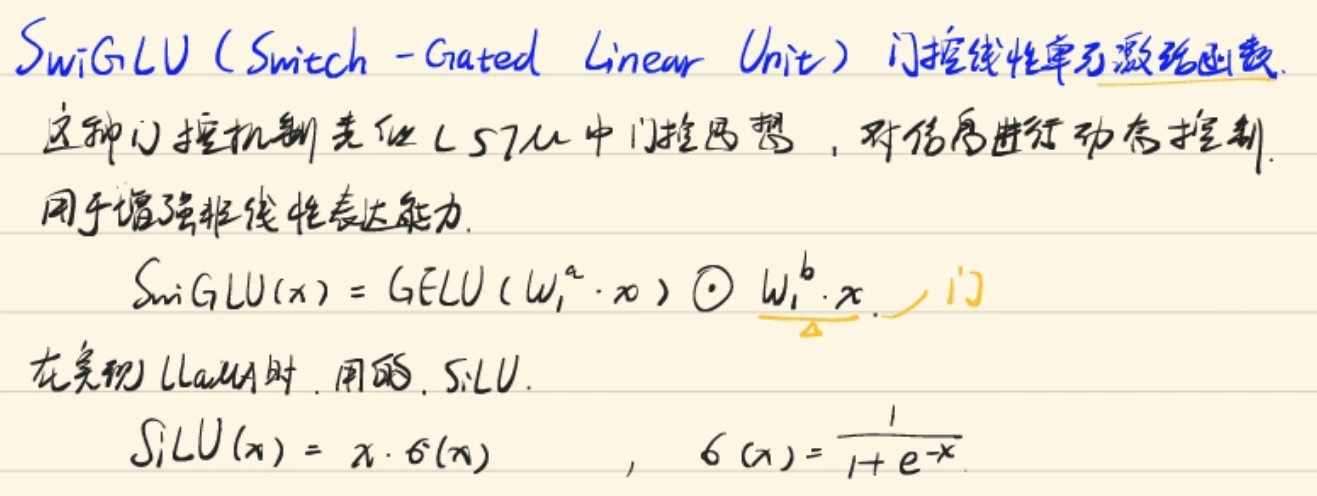 SwiGLU (Switch - Gated Linear Unit) 门控线性单元激活函数.
这种门控机制类似LSTM中门控思想，对信息进行动态控制.
用于增强非线性表达能力.
SwiGLU(x) = GELU(W₁ᵃ·x) ⊙ W₁ᵇ·x. 门
在实现LLaMA时.用的.SiLU.
SiLU(x) = x·σ(x) , σ(x) = 1/(1+e⁻ˣ)